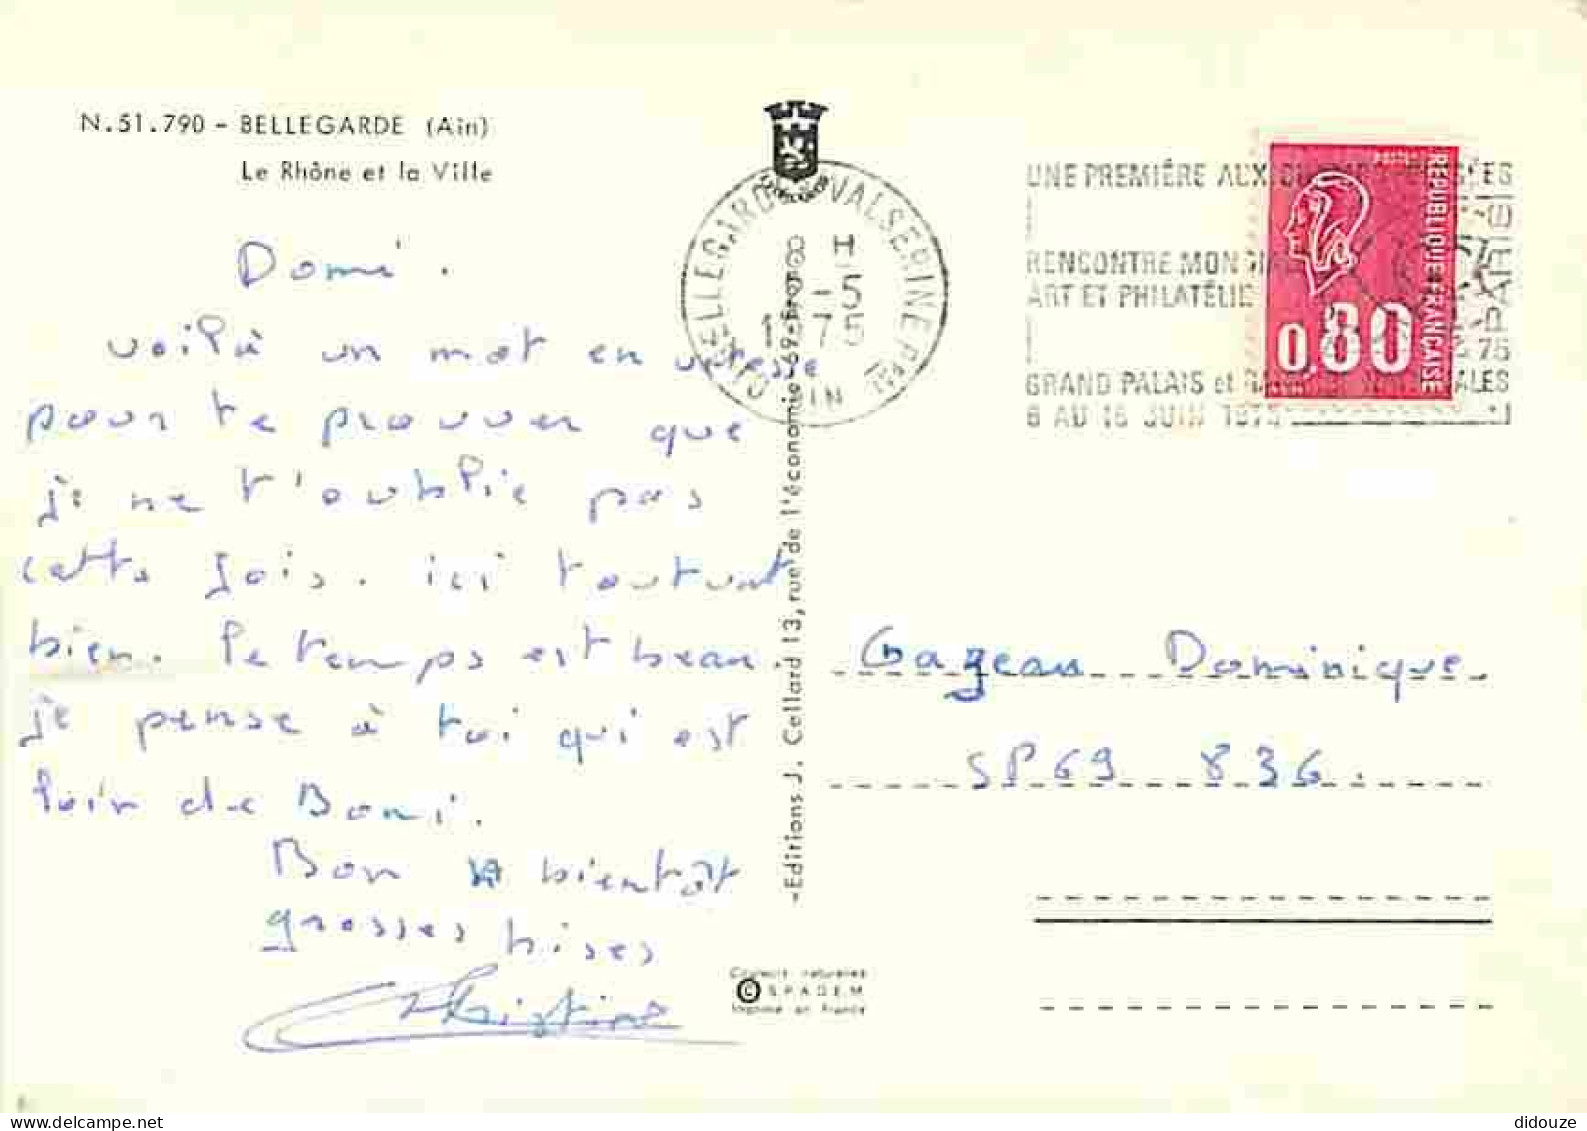 N.51.790 - BELLEGARDE (Ain)
Le Rhône et la Ville
Domi.
voilà un mot en vitesse
pour te prouver que
je ne t'oublie pas
cette fois. ici tout va
bien. le temps est beau
je pense à toi qui est
loin de Domi.
Bon bientôt
grosses bises
Christine
BELLEGARDE VALSERINE PPAL
8 H
-5
1975
AIN
UNE PREMIÈRE AUX
RENCONTRE MONDIALE
ART ET PHILATÉLIE
GRAND PALAIS et
6 AU 16 JUIN 1975
REPUBLIQUE FRANÇAISE
POSTES
0,80
-Editions J. Cellard 13, rue de l'économie 69-Bron
Gazeau Dominique
SP 69 836.
Couleurs naturelles
© S.P.A.D.E.M.
Imprimé en France
didouze